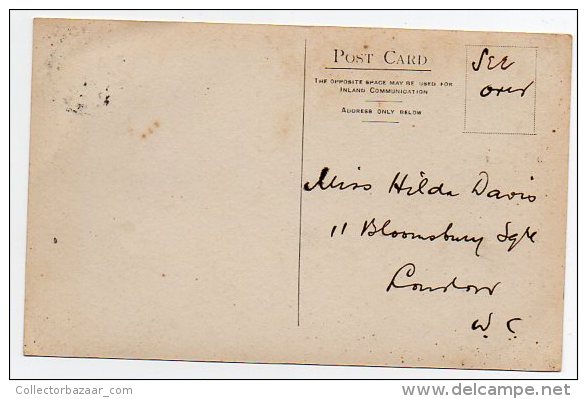 POST CARD
THE OPPOSITE SPACE MAY BE USED FOR
INLAND COMMUNICATION
ADDRESS ONLY BELOW
See
over
Miss Hilda Davis
11 Bloomsbury Sqre
London
W.C
Collectorbazaar_com
©delcampe.net